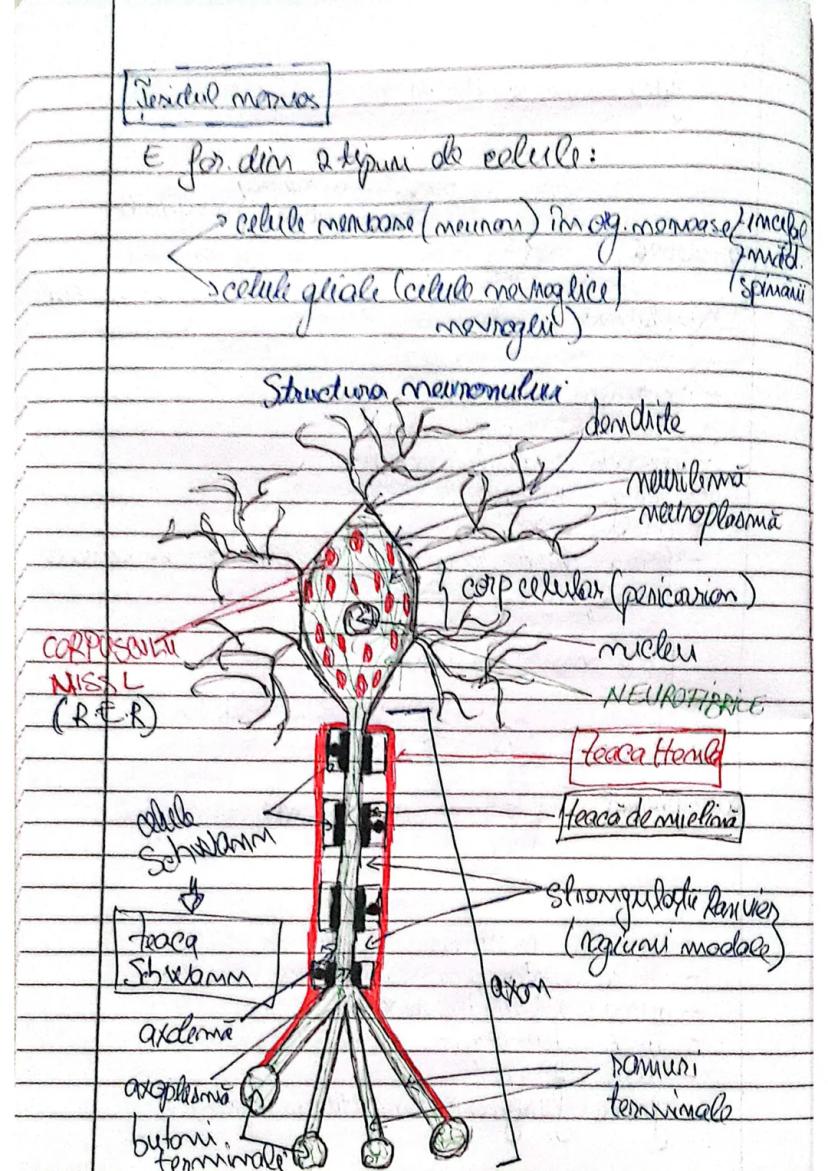 Țesutul nervos
E for. din 2 tipuri de celule:
celule nervoase (neuron) în org. nervoase encefal
măd.
spinării
celule gliale (celule nevroglice)
nevroglii)
Structura neuronului
dendrite
neurilemă
neuroplasmă
corp celular (pericarion)
CORPUSCULII
NISSL
(R.E.R)
nucleu
NEUROFIBRILE
teaca Henle
teacă de mielină
celule
Schwann
teaca
Schwann
strangulații Ranvier
(regiuni nodale)
axon
axolemă
axoplasmă
butoni
terminale
ramuri
terminale